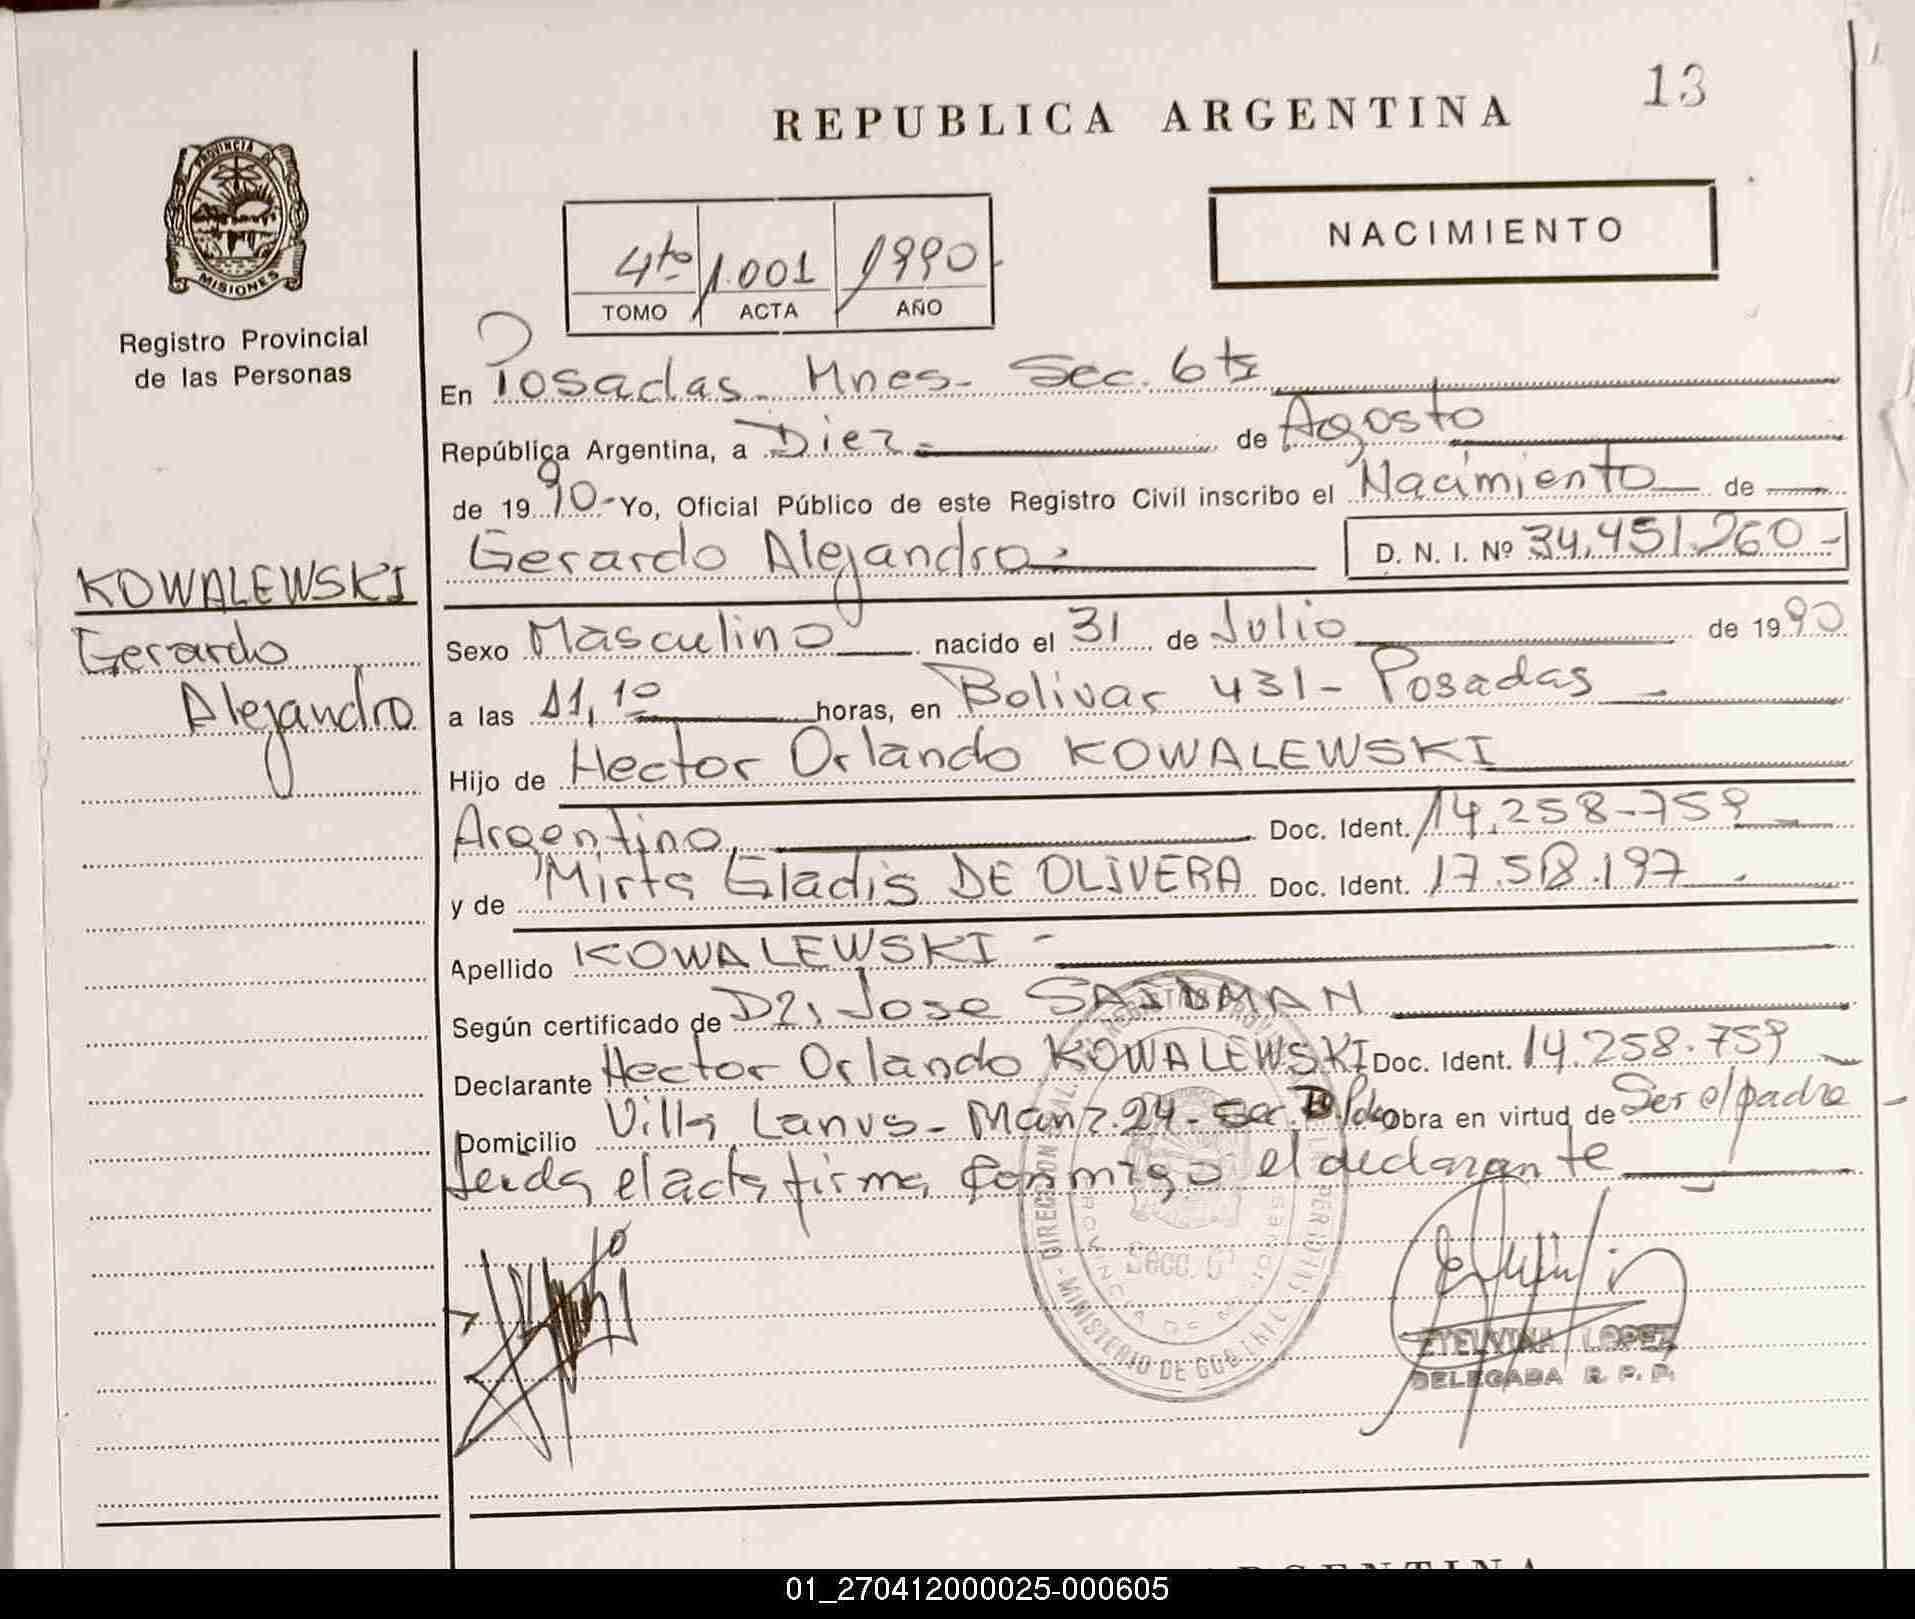 13
REPUBLICA ARGENTINA
NACIMIENTO
PROVINCIA DE
MISIONES
Registro Provincial
de las Personas
4to 1.001 1990
TOMO ACTA AÑO
En Posadas - Mnes - Sec. 6ta
República Argentina, a Diez - de Agosto
de 1990 - Yo, Oficial Público de este Registro Civil inscribo el Nacimiento de
Gerardo Alejandro - D. N. I. Nº 34.451.260 -
KOWALEWSKI
Gerardo
Alejandro
Sexo Masculino nacido el 31 de Julio de 1990
a las 11,10 horas, en Bolivar 431 - Posadas -
Hijo de Hector Orlando KOWALEWSKI
Argentino Doc. Ident. 14.258.759 -
y de Mirta Gladis DE OLIVERA Doc. Ident. 17.518.197 -
Apellido KOWALEWSKI -
Según certificado de Dr. Jose
Declarante Hector Orlando KOWALEWSKI Doc. Ident. 14.258.759
Domicilio Villa Lanus - Manz. 24 - Obra en virtud de Ser el padre -
Leida el acta firma conmigo el declarante
DIRECCION
MINISTERIO DE GOB
Secc. 6
ETELVINA LOPEZ
DELEGADA R. P. P.
01_270412000025-000605